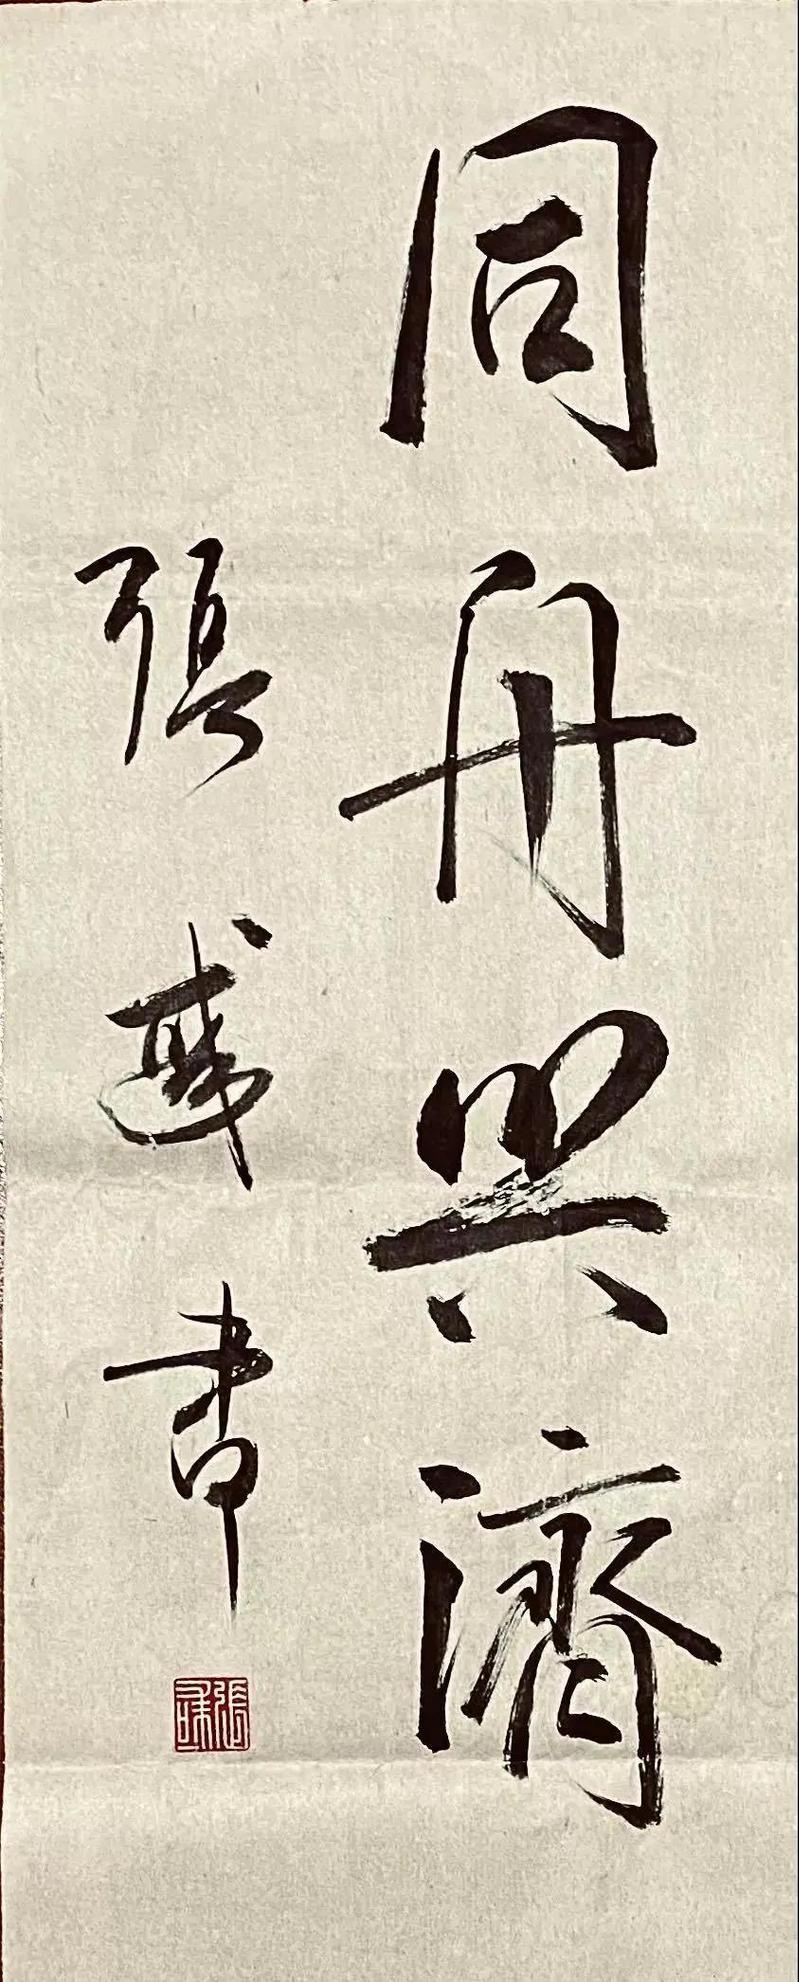 同舟共濟
張書